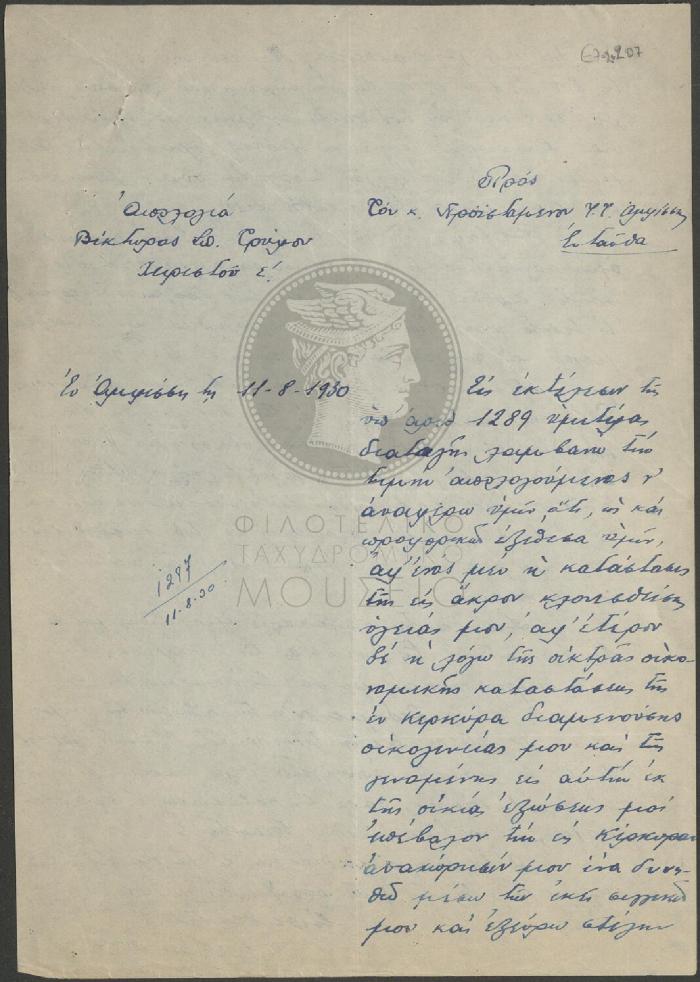 Ἀπολογία
Βίκτωρος Σπ. Τρύφου
Χειριστοῦ Ε΄.
Πρὸς
Τὸν κ. Προϊστάμενον Τ.Τ. Ἀμφίσσης
Ἐνταῦθα
Ἐν Ἀμφίσσῃ τῇ 11-8-1930
1297
11-8-30
Εἰς ἐκτέλεσιν τῆς
ὑπ' ἀριθ 1289 ὑμετέρας
διαταγῆς λαμβάνω τὴν
τιμὴν ἀπολογούμενος ν'
ἀναφέρω ὑμῖν ὅτι, ὡς καὶ
προφορικῶς ἐξέθεσα ὑμῖν,
ἀφ' ἑνὸς μὲν ἡ κατάστασις
τῆς εἰς ἄκρον κλονισθείσης
ὑγείας μου, ἀφ' ἑτέρου
δὲ ἡ λόγῳ τῆς οἰκτρᾶς οἰκο-
νομικῆς καταστάσεως τῆς
ἐν Κερκύρᾳ διαμενούσης
οἰκογενείας μου καὶ τῆς
γεναμένης εἰς αὐτὴν ἐκ
τῆς οἰκία ἐξώσεως μοὶ
ἐπέβαλον τὴν εἰς Κέρκυραν
ἀναχώρησίν μου ἵνα δυνη-
θῶ μέσω τῶν ἐκεῖ συγγενῶν
μου καὶ ἐξεύρω στέγην
ΦΙΛΟΤΕΛΙΚΟ
ΤΑΧΥΔΡΟΜΙΚΟ
ΜΟΥΣΕΙΟ